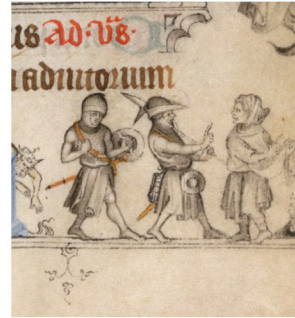 us Ad. v̄s.
adiutorium